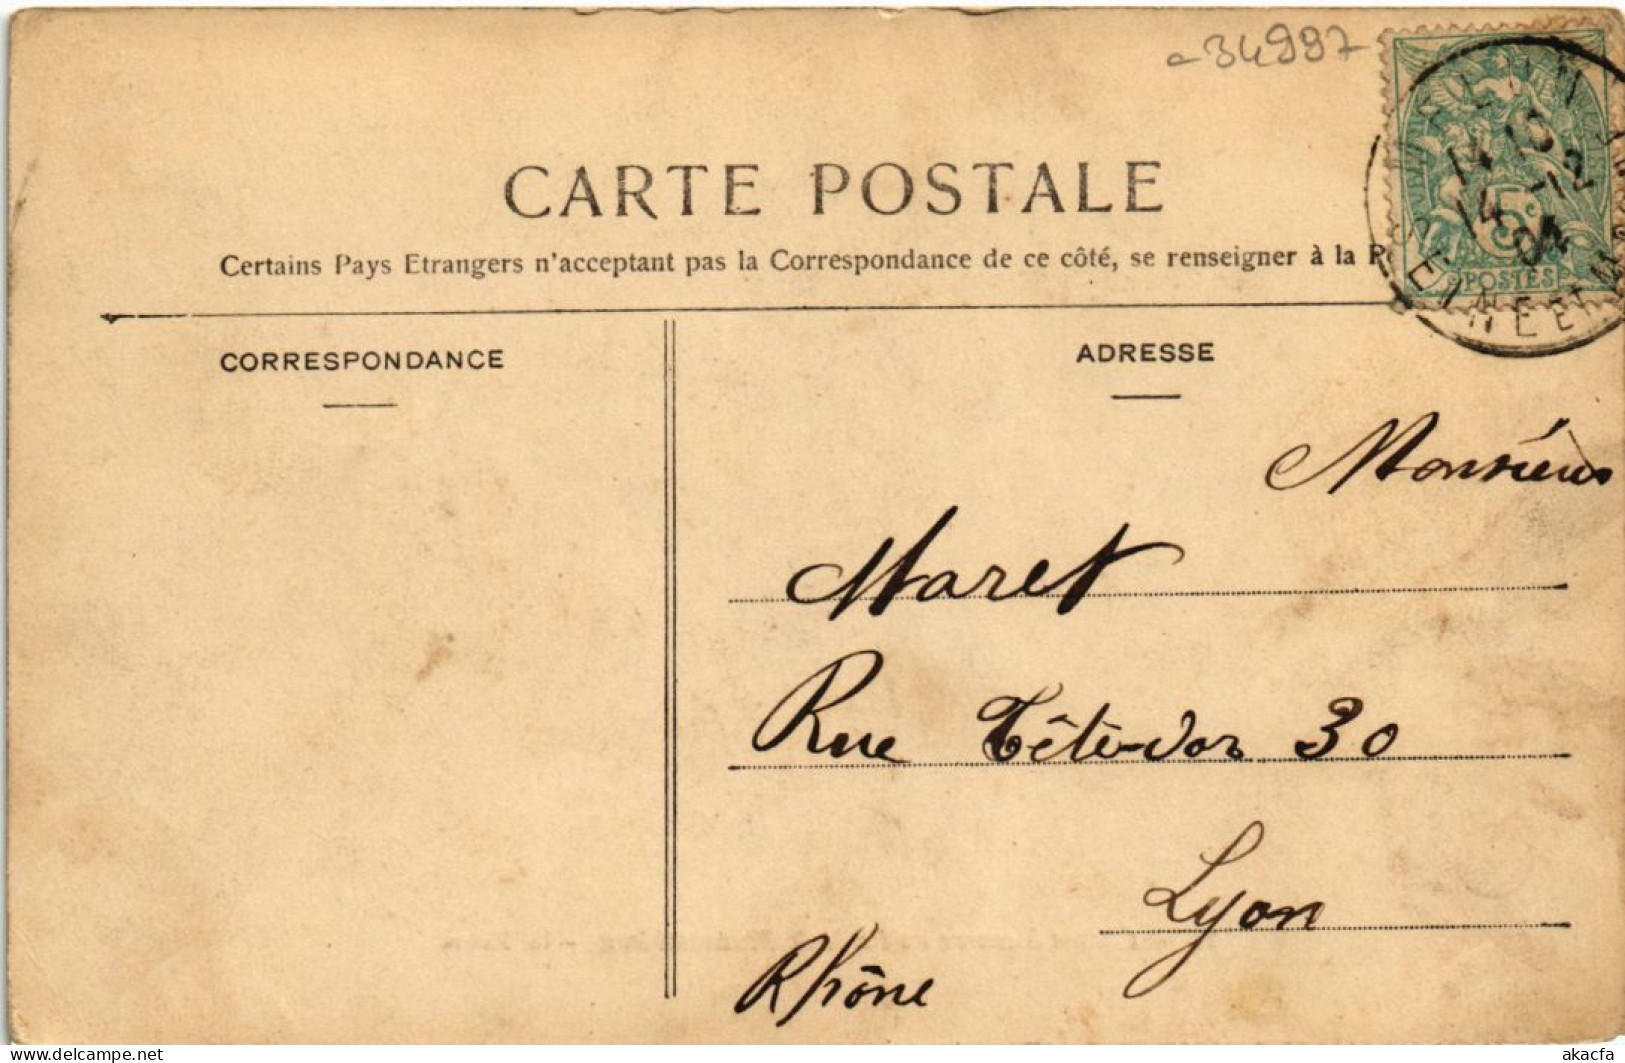 34997
CARTE POSTALE
Certains Pays Etrangers n'acceptant pas la Correspondance de ce côté, se renseigner à la P
14 12
04
5c
POSTES
CORRESPONDANCE
ADRESSE
Monsieur
Maret
Rue Tête-d'or 30
Lyon
Rhône
akacfa